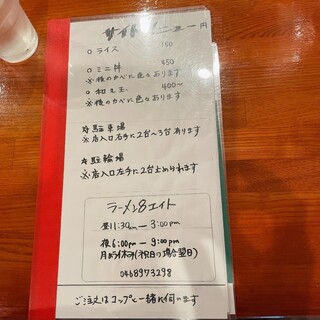 サイドメニュー 円
○ ライス 150
○ ミニ丼 450
※後のカベに色々あります
○ 和え玉 400〜
※後のカベに色々あります
☆ 駐車場
※店入口右手に2台〜3台あります
☆ 駐輪場
※店入口左手に2台止められます
ラーメン8エイト
昼11:30am〜3:00pm
夜6:00pm〜9:00pm
月よう休み(祝日の場合翌日)
0468973298
ご注文はコップと一緒に伺います